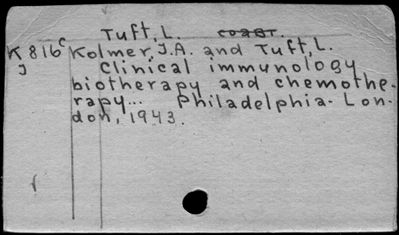 Tuft, L. coaвт.
K 816c Kolmer, J.A. and Tuft, L.
J Clinical immunology
biotherapy and chemothe-
rapy... Philadelphia- Lon-
don, 1943.